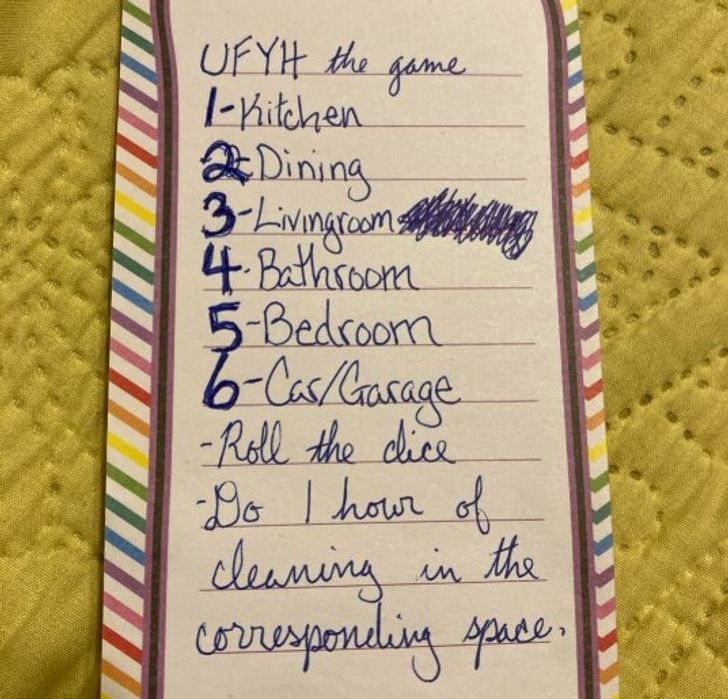 UFYH the game
1-Kitchen
2-Dining
3-Livingroom
4-Bathroom
5-Bedroom
6-Car/Garage
-Roll the dice
-Do 1 hour of
cleaning in the
corresponding space.